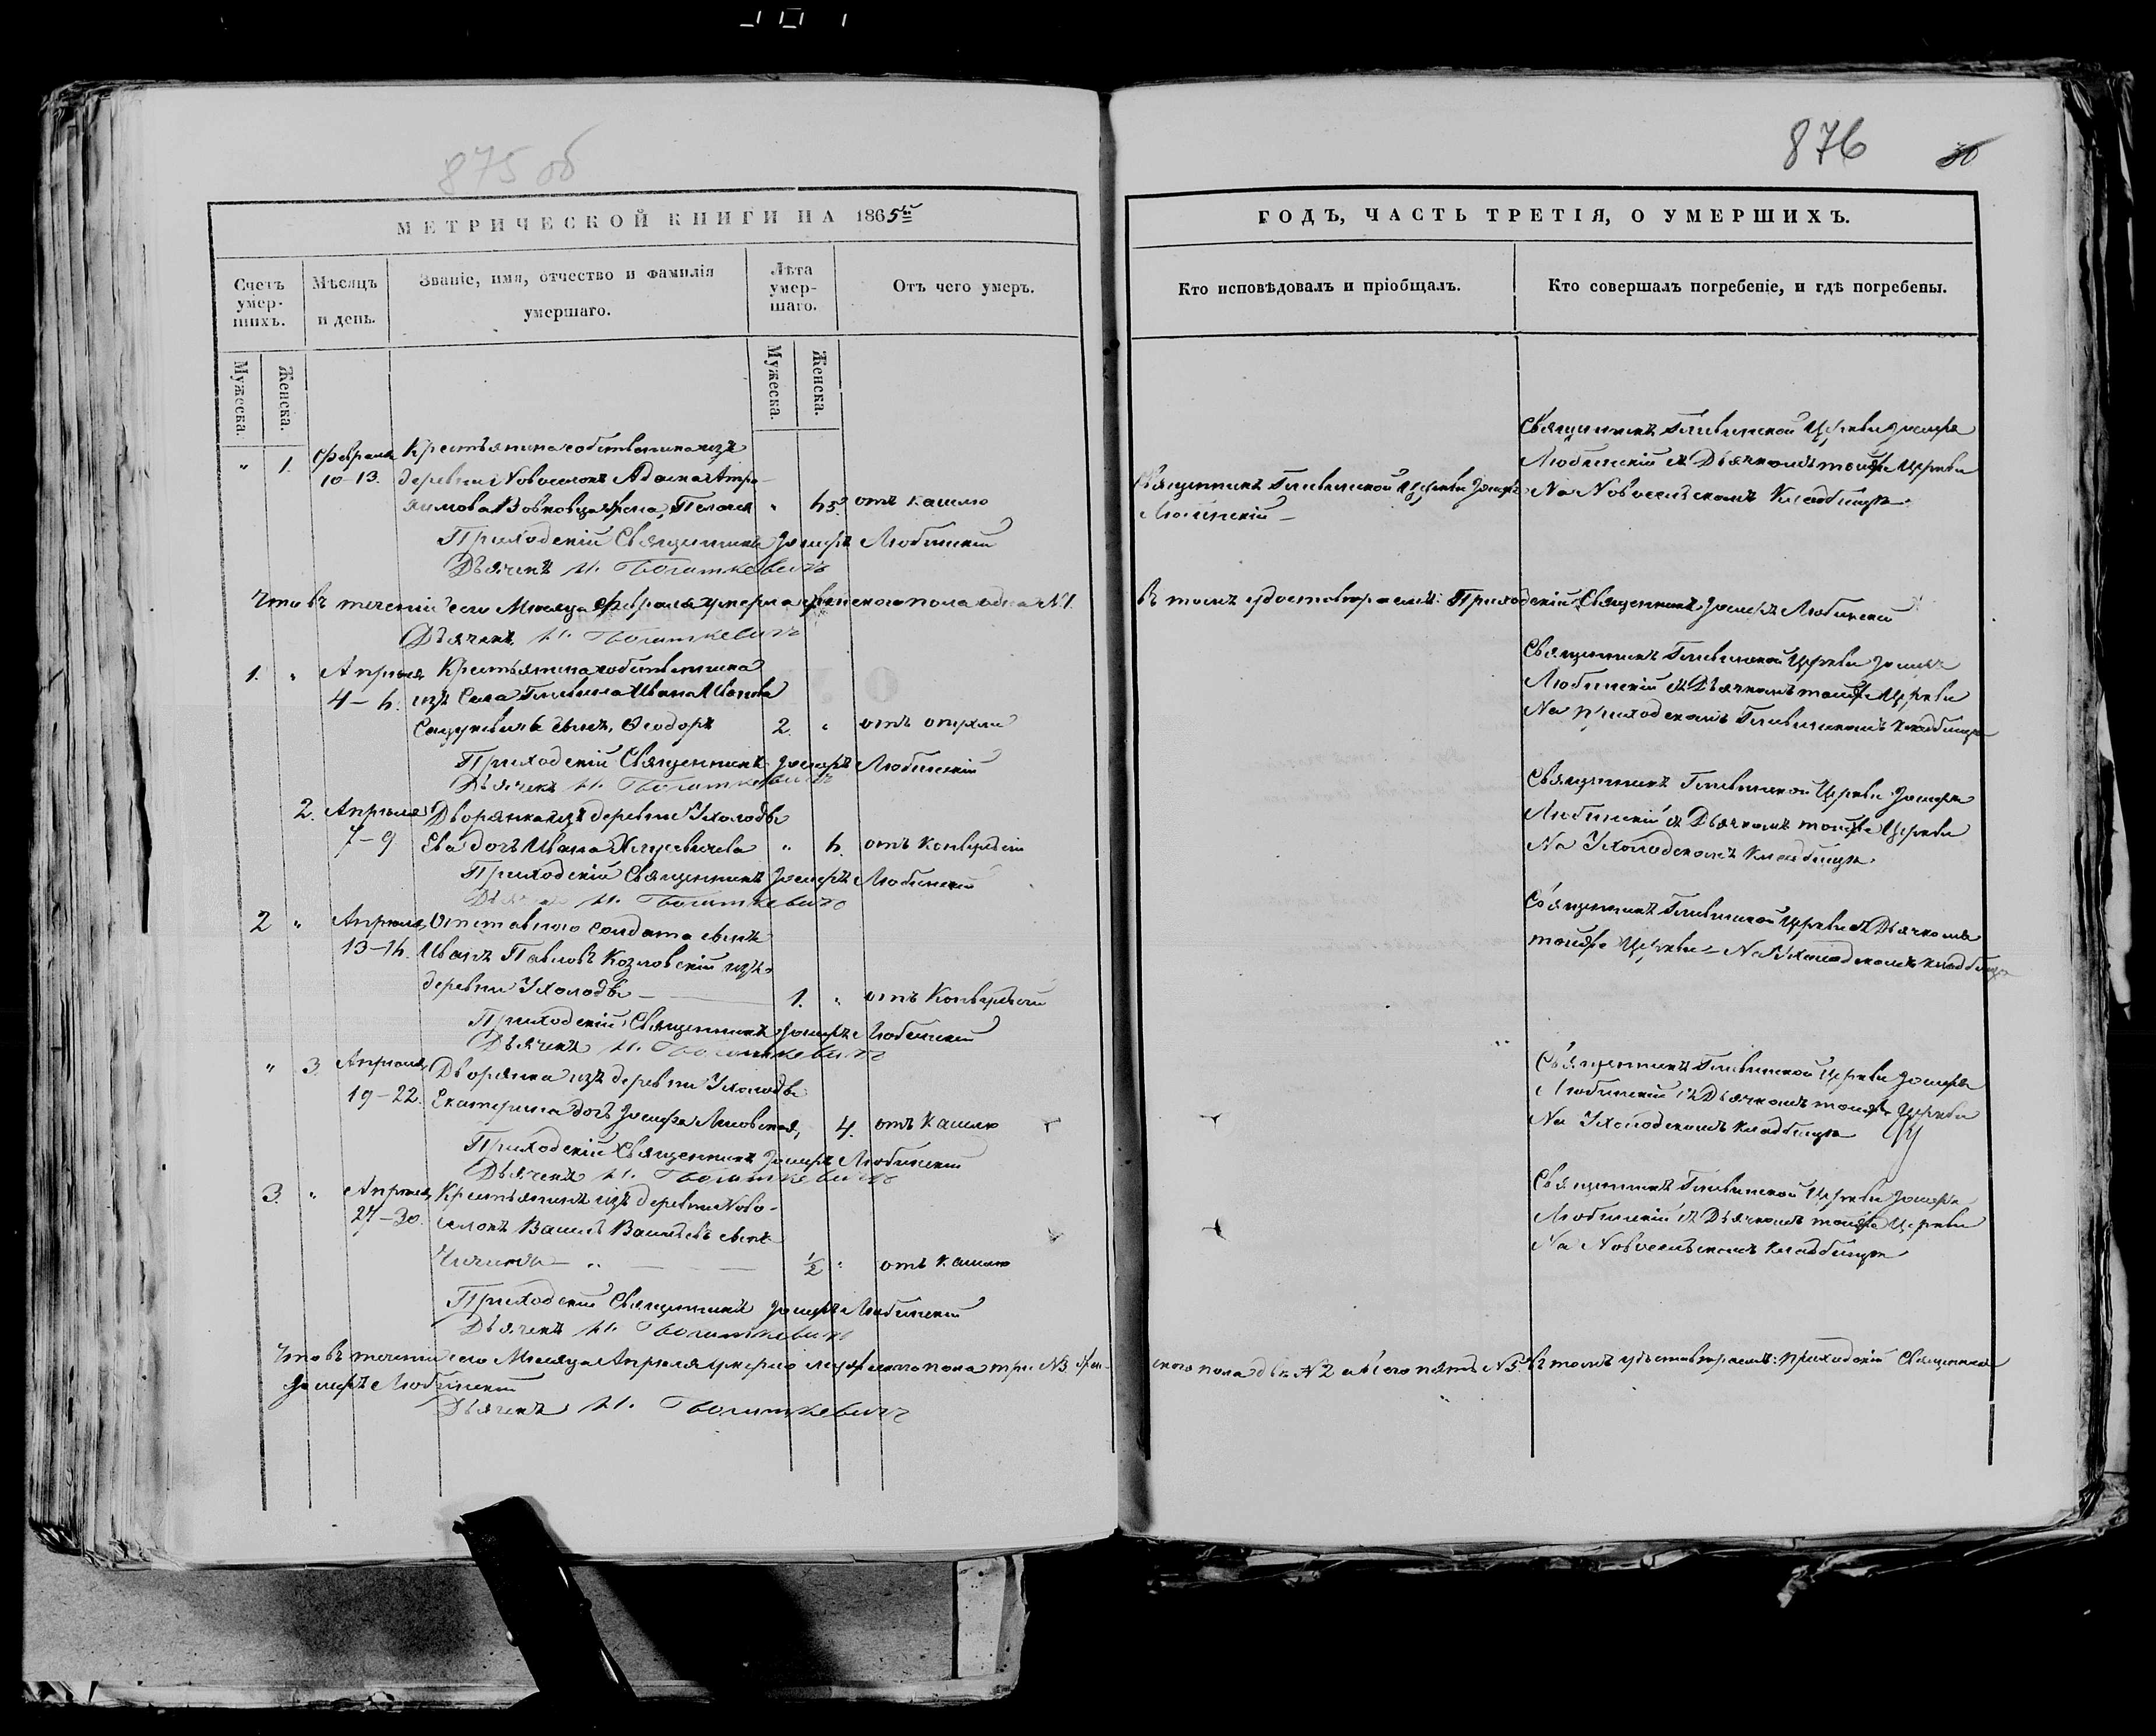 875 об
МЕТРИЧЕСКОЙ КНИГИ НА 1865й
Счетъ умер-шихъ.
Мѣсяцъ и день.
Званіе, имя, отчество и фамилія умершаго.
Лѣта умер-шаго.
Отъ чего умеръ.
Мужеска.
Женска.
Мужеска.
Женска.
" 1. Февраля Крестьянина собственника изъ
10-13. деревни Новоселокъ Адама
Вовковца жена, " отъ кашлю
Приходскій Священникъ Іосифъ Любинскій
Дьячекъ И.
Что въ теченіи сего Мѣсяца Февраля умерла женского пола одна №1.
Дьячекъ И.
1. " Апрѣля Крестьянина собственника
4- изъ Села Гливина Ивана Иванова
сынъ, Ѳеодоръ 2. " отъ
Приходскій Священникъ Іосифъ Любинскій
Дьячекъ И.
2. Апрѣля Дворянка изъ деревни Ухолоды
7-9 Ева дочь Ивана "
Приходскій Священникъ Іосифъ Любинскій
И.
2 " Апрѣля Отставного Солдата сынъ
13- Иванъ Павловъ Козловскій изъ
деревни Ухолоды 1. "
Приходскій Священникъ Іосифъ Любинскій
Дьячекъ И.
" 3. Апрѣля Дворянка изъ деревни Ухолоды
19-22. Екатерина дочь Іосифа 4. отъ Кашлю
Приходскій Священникъ Іосифъ Любинскій
Дьячекъ И.
3. " Апрѣля Крестьянинъ изъ деревни Ново-
27-30. селокъ Василь Васильевъ сынъ
½ " отъ Кашлю
Приходскій Священникъ Іосифъ Любинскій
Дьячекъ И.
Что въ теченіи сего Мѣсяца Апрѣля умерло мужеского пола три №3 жен-
Іосифъ Любинскій
Дьячекъ И.
876
30
ГОДЪ, ЧАСТЬ ТРЕТІЯ, О УМЕРШИХЪ.
Кто исповѣдовалъ и пріобщалъ.
Кто совершалъ погребеніе, и гдѣ погребены.
Священникъ Гливинской Церкви Іосифъ
Любинскій съ Дьячкомъ тойже Церкви
На Новосельскомъ Кладбищѣ
Священникъ Гливинской Церкви Іосифъ
Любинскій
въ томъ удостовѣряемъ: Приходскій Священникъ Іосифъ Любинскій
Священникъ Гливинской Церкви Іосифъ
Любинскій съ Дьячкомъ тойже Церкви
На приходскомъ Гливинскомъ кладбищѣ
Священникъ Гливинской Церкви Іосифъ
Любинскій съ Дьячкомъ тойже Церкви
На Ухолодскомъ Кладбищѣ.
Священникъ Гливинской Церкви съ Дьячкомъ
тойже Церкви На Ухолодскомъ кладбищѣ
Священникъ Гливинской Церкви Іосифъ
Любинскій съ Дьячкомъ тойже Церкви
На Ухолодскомъ кладбищѣ
Священникъ Гливинской Церкви Іосифъ
Любинскій съ Дьячкомъ тойже Церкви
На Новосельскомъ кладбищѣ
ского пола двѣ №2 обоего пять №5. Въ томъ удостовѣряемъ: приходскій Священникъ